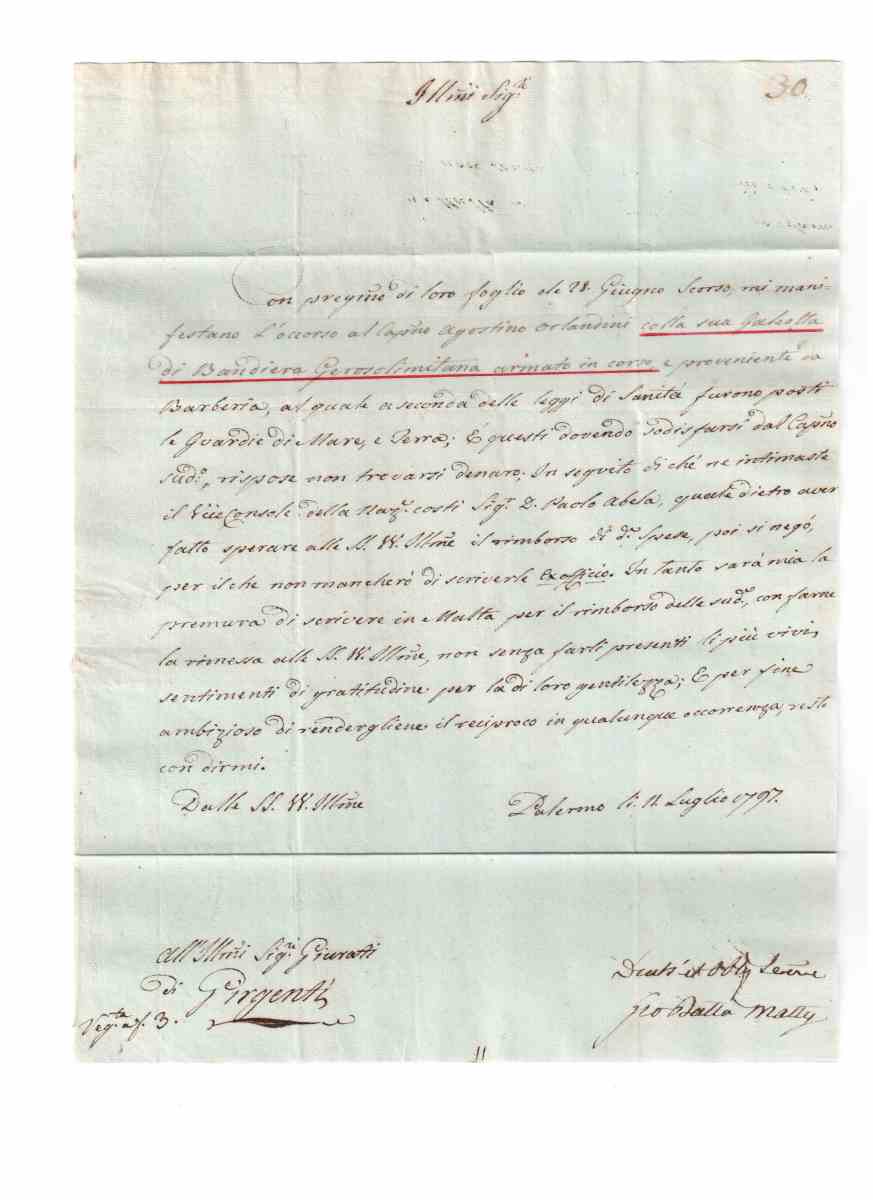 Illmi Sig.ri
30
Con pregmo di loro foglio de 28. Giugno Scorso, mi mani-
festano l'occorso al Capno Agostino Orlandini colla sua Galeotta
di Bandiera Gerosolimitana armato in corso, e proveniente da
Barberia, al quale a seconda delle leggi di Sanità furono posti
le Guardie di Mare, e Terra; E questi dovendo sodisfarsi dal Capno
sudo, rispose non trovarsi denaro; In seguito di ché ne intimaste
il ViceConsole della Naz.e costi Sig.r D. Paolo Abela, quale dietro aver
fatto sperare alle SS. VV. Illme il rimborso di d.e Spese, poi si negó,
per il che non mancheró di scriverle Exofficio. In tanto sará mia la
premura di scrivere in Malta per il rimborso delle sud.e, con farne
la rimessa alle SS. VV. Illme, non senza farli presenti li più vivi
sentimenti di gratitudine per la di loro gentilezza; E per fine
ambizioso di rendergliene il reciproco in qualunque occorrenza, resto
con dirmi.
Dalle SS. VV. Illme
Palermo li. 11. Luglio 1797.
All'Illmi Sig.ri Giurati
di Girgenti
f. 3.